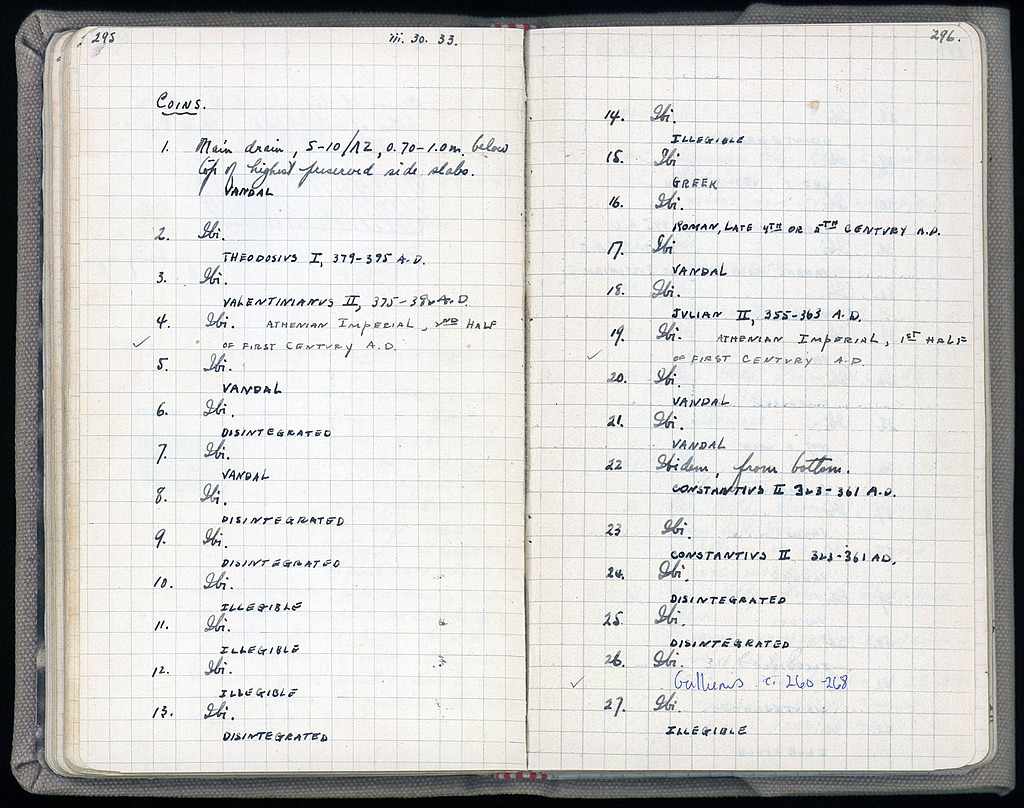 295
iii. 30. 33.
Coins.
1. Main drain, 5-10/ΛΖ, 0.70-1.0 m. below
top of highest preserved side slabs.
VANDAL
2. Ibi.
THEODOSIUS I, 379-395 A.D.
3. Ibi.
VALENTINIANUS II, 375-392 A.D.
4. Ibi. ATHENIAN IMPERIAL, 2ND HALF
OF FIRST CENTURY A.D.
5. Ibi.
VANDAL
6. Ibi.
DISINTEGRATED
7. Ibi.
VANDAL
8. Ibi.
DISINTEGRATED
9. Ibi.
DISINTEGRATED
10. Ibi.
ILLEGIBLE
11. Ibi.
ILLEGIBLE
12. Ibi.
ILLEGIBLE
13. Ibi.
DISINTEGRATED
296.
14. Ibi.
ILLEGIBLE
15. Ibi
GREEK
16. Ibi.
ROMAN, LATE 4TH OR 5TH CENTURY A.D.
17. Ibi
VANDAL
18. Ibi.
JULIAN II, 355-363 A.D.
19. Ibi. ATHENIAN IMPERIAL, 1ST HALF
OF FIRST CENTURY A.D.
20. Ibi.
VANDAL
21. Ibi.
VANDAL
22 Ibidem, from bottom.
CONSTANTIUS II 323-361 A.D.
23 Ibi.
CONSTANTIUS II 323-361 AD.
24. Ibi.
DISINTEGRATED
25. Ibi.
DISINTEGRATED
26. Ibi.
Gallienus c. 260-268
27. Ibi.
ILLEGIBLE